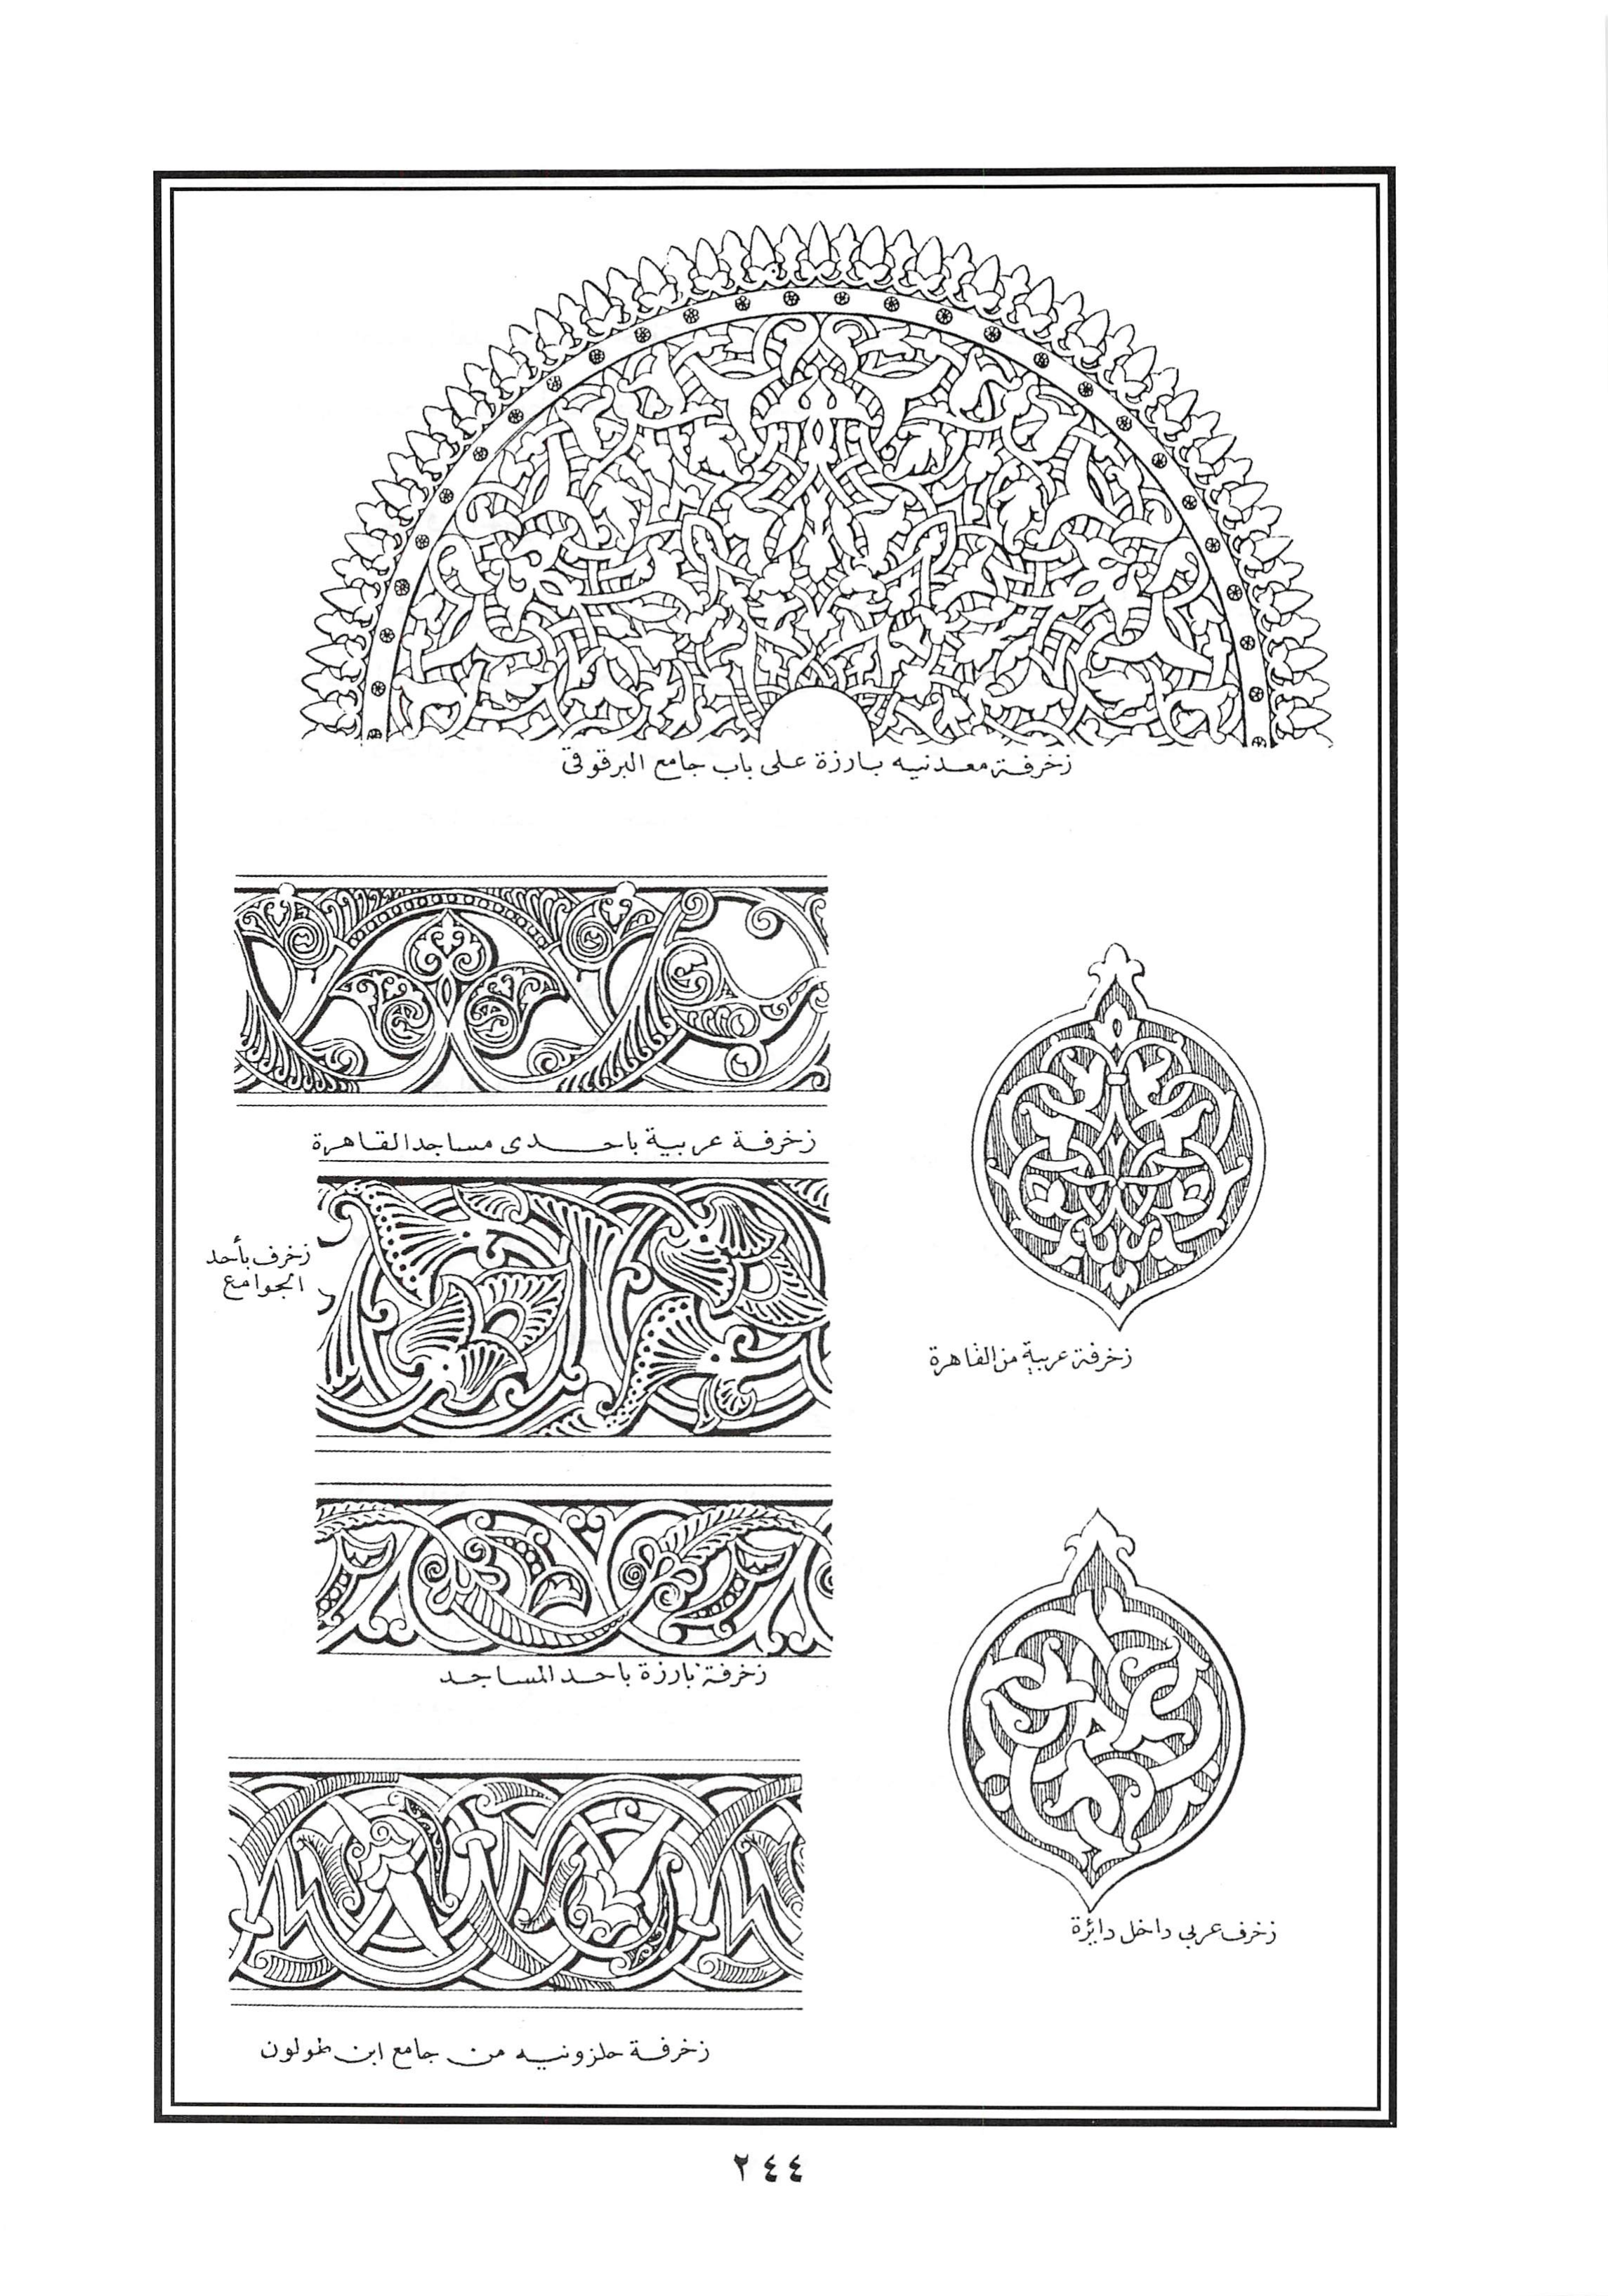 زخرفة معدنيه بارزة على باب جامع البرقوقي
زخرفة عربية باحدى مساجد القاهرة
زخرف بأحد
الجوامع
زخرفة عربية من القاهرة
زخرفة بارزة باحد المساجد
زخرف عربي داخل دائرة
زخرفة حلزونيه من جامع ابن طولون
٢٤٤